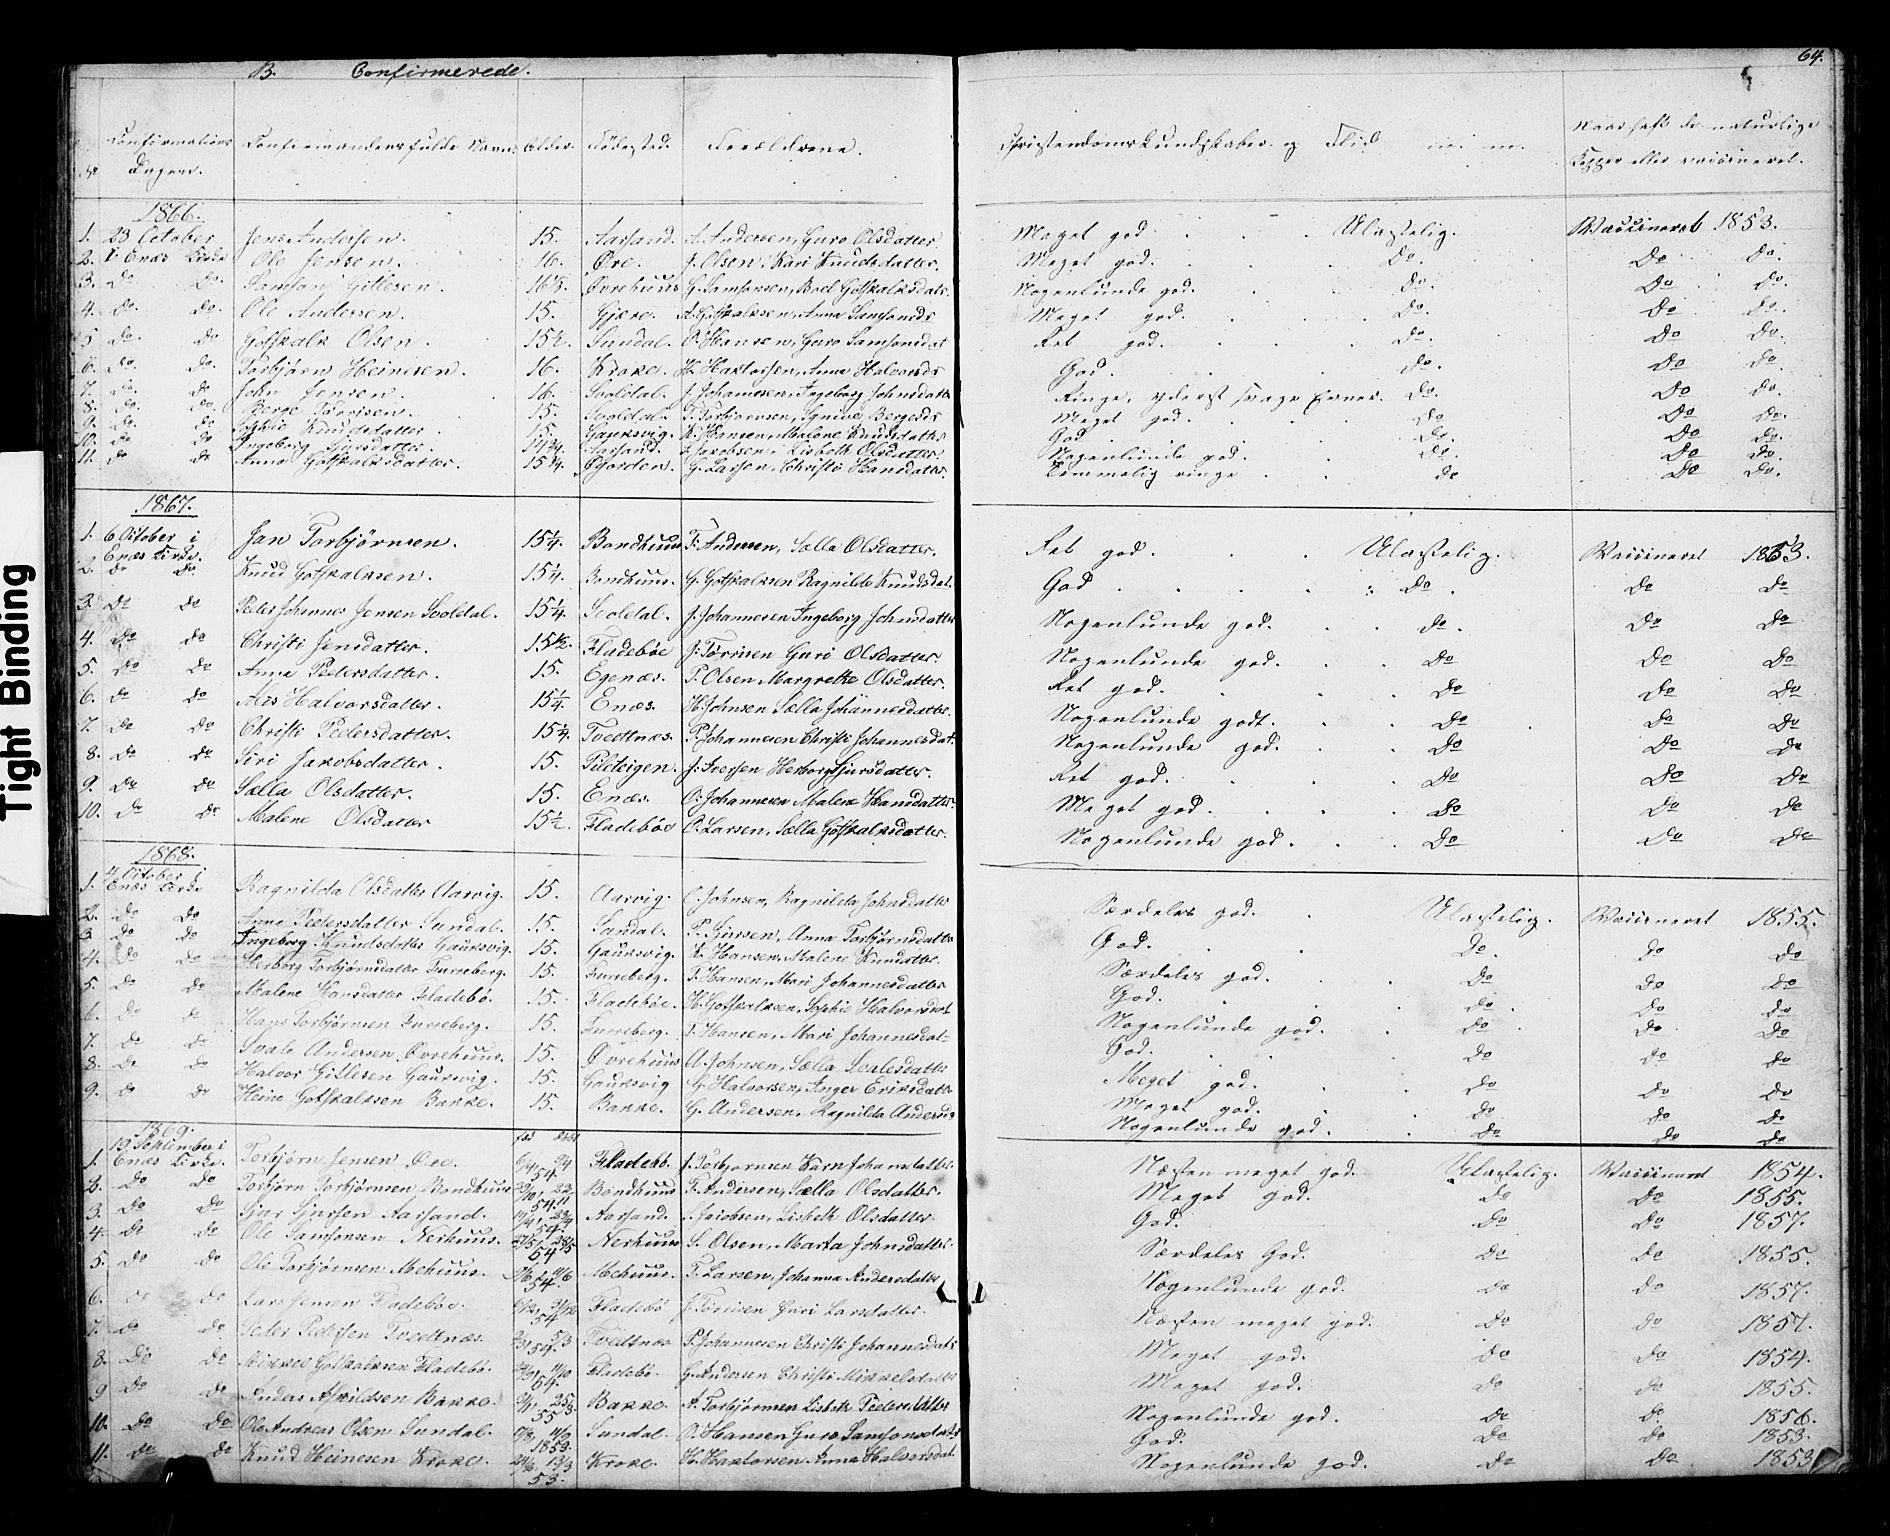 B. Confirmerede. 64.
No Confirmations Dagen. Confirmandens fulde Navn Alder Fødested. Forældrene. Christendoms Kundskaber og Flid Naar havt de naturlige Kopper eller vaccineret.
1866.
1. 23 October Jens Andersen. 15. Aarsand. A. Andersen, Guro Olsdatter Meget god. Ulastelig. Vaccineret 1853.
2. i Enæs Kirke Ole Jensen. 16. Øre. J. Olsen, Kari Knudsdatter. Meget god. Do. Do. Do.
3. Do Do. Samson Gitlesen. Øvrehuus G. Samsonsen, Brel Gotskalksdatr. Nogenlunde god. Do. Do Do.
4. Do. Do. Ole Andersen. 15. Gjære. A. Gotskalksen, Anna Samsonsds Meget god. Do. Do Do.
5 Do. Do Gotskalk Olsen. 15½. Sundal. O. Hansen, Guro Samsonsdat Ret god. Do. Do Do.
6. Do. Do. Torbjørn Heinesen. 16. Kroke. H. Haktorsen, Anna Halvorsds God. Do. Do Do.
7. Do. Do John Jensen. 16. Svoldal. J. Johannesen, Ingeborg Johnsdatter Ringe, yderst svage Evner. Do. Do Do.
8. Do. Do. Berge Tørrisen. 15. Svoldal. T. Torbjørnsen, Bergesds Meget god. Do Do Do.
9. Do. Do Knudsdatter. 15. Gauksvig. K. Hansen, Malene Knudsdatter God. Do. Do Do.
10. Do Do Ingeborg Sjursdatter. 14¾. Aarsand. S. Jacobsen, Lisbeth Olsdatter. Nogenlunde god. Do. Do Do.
11. Do Do Anna Gotskalksdatter. 15¼. Øjorden. G. Larsen, Christi Hansdatter. Temmelig ringe. Do Do Do.
1867.
1. 6 October i Enæs Kirke. Jan Torbjørnsen. 15¼. Bondhuus T. Andersen, Sælla Olsdatter. Ret god. Ulastelig. Vaccineret 1853.
2. Do Do. Knud Gotskalksen. 15¼. Bondhuus. G. Gotskalksen Ragnilde Knudsdat. God. Do. Do Do
3. Do Do Peder Johannes Jensen Svoldal. 15¼. Svoldal. J. Johannesen Ingeborg Johnsdatter Nogenlunde god. Do. Do Do
4. Do Do Christi Jensdatter. 15½. Fladebøe J. Tørrisen Guri Olsdatter. Nogenlunde god. Do Do Do
5. Do Do Anna Pedersdatter. 15. Egenæs. P. Olsen Margrethe Olsdatter. Ret god. Do Do Do
6. Do Do Aris Halvorsdatter. 15¼. Enæs. H. Johnsen Sælla Johannesdatter. Nogenlunde godt. Do Do Do
7. Do Do Christi Pedersdatter. 15¼. Tvedtnæs. P. Johannesen Christi Johannesdat. Nogenlunde god. Do Do Do
8. Do Do Siri Jakobsdatter. 15. Pilteigen. J. Iversen Herborg Sjursdatter. Ret god. Do Do Do
9. Do Do Sælla Olsdatter. 15. Enæs. O. Johannesen Malene Hansdatter Meget god. Do Do Do
10. Do Do Malene Olsdatter 15½. Fladebøe O. Larsen, Sælla Gotskalksdatter. Nogenlunde god. Do Do Do
1868.
1. 4 October i Enæs Kirke Ragnilda Olsdatter Aarvig. 15. Aarvig. O. Johnsen, Ragnilda Johnsdatter Særdeles god. Ulastelig. Vaccineret 1855.
2. Do Do Anna Pedersdatter Sundal. 15. Sundal. P. Sjursen, Anna Torbjørnsdatter God. Do. Do Do
3. Do Do Ingeborg Knudsdatter Gauksvig. 15. Gauksvig. K. Hansen, Malene Knudsdtr. Særdeles god. Do Do Do
4. Do Do Herborg Torbjørnsdatter Furreberg. 15. Furreberg. T. Hansen, Mari Johannesdatter God. Do. Do Do
5. Do Do Malene Hansdatter Fladebø. 15. Fladebøe. H. Gotskalksen, Sophie Halvorsdat Nogenlunde god. Do Do Do
6. Do Do Hans Torbjørnsen Furreberg. 15. Furreberg. T. Hansen, Mari Johannesdat. God. Do Do Do
7. Do Do Svale Andersen Øvrehuus. 15. Øvrehuus A. Johnsen, Sælla Svalesdatter Meget god. Do Do Do
8. Do Do Halvor Gitlesen Gauksvig. 15. Gauksvig G. Halvorsen, Inger Eriksdatter Meget god. Do Do Do
9. Do Do Heine Gotskalksen Bakke. 15. Bakke. G. Andersen, Ragnilda Andersds Nogenlunde god. Do Do Do
1869. fød døbt
1. 19 September i Enæs Kirke. Torbjørn Jensen Øre. 54. Fladebø. J. Torbjørnsen Karn Johansdatter. Næsten meget god. Ulastelig. Vaccineret 1854.
2. Do Do Torbjørn Torbjørnsen Bondhuus 54. Bondhuus T. Andersen, Sælla Olsdatter. Meget god. Do Do 1855.
3. Do Do Sjur Sjursen Aarsand. 54. Aarsand. S. Jacobsen, Lisbeth Olsdatter. God. Do Do 1857.
4. Do Do Ole Samsonsen Nerhuus. 54 Nerhuus S. Olsen, Marta Johnsdatter. Særdeles God. Do Do 1855.
5. Do Do Ole Torbjørnsen Mehuus. 54 Mehuus. T. Larsen, Johanna Andersdatter Nogenlunde god. Do Do 1857.
6. Do Do Lars Jensen Fladebøe. 54 Fladebø J. Tørrisen Guri Larsdatter. Næsten meget god. Do Do 1857.
7. Do Do Peder Pedersen Tvedtnæs. 54. Tvedtnæs P. Johannesen Christi Johannesdatr Meget god. Do Do 1854.
8. Do Do Mikkel Gotskalksen Fladebø. 54. Fladebø. G. Andersen Christi Mikkelsdatter Meget god. Do Do 1855.
9 Do Do Andas Bakke. 55 Bakke. A. Torbjørnsen Lisbeth Pedersdatter Nogenlunde god. Do Do 1856.
10. Do Do Ole Andreas Olsen Sundal. 1853. Sundal. O. Hansen Guro Samsonsdatr God. Do Do 1853.
11. Do Do Knud Heinesen Kroke. 53. Kroke. H. Haktorsen Anna Halvorsdat. Nogenlunde god. Do Do 1853
Tight Binding